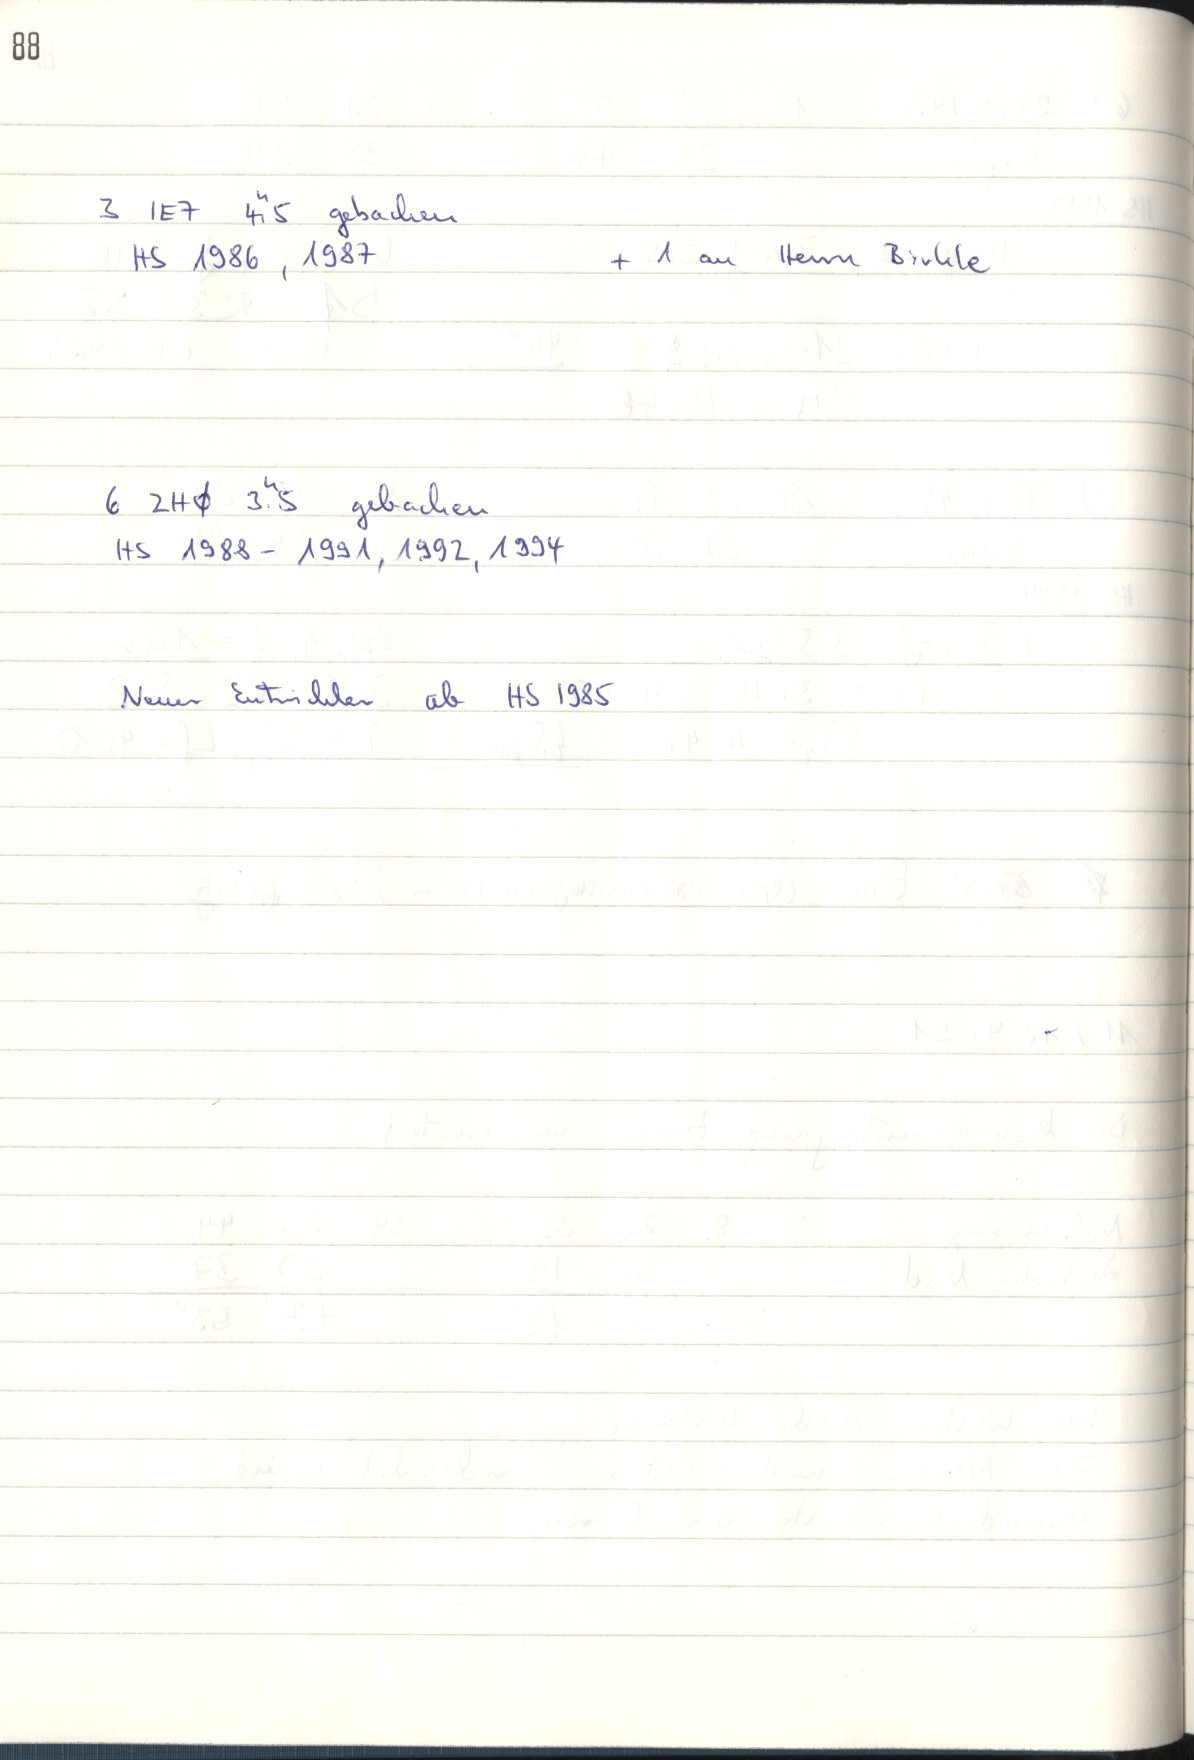 88
3 IE7 4."5 gebacken
HS 1986, 1987 + 1 an Herrn Birkle
6 2HØ 3."5 gebacken
HS 1988 - 1991, 1992, 1994
Neuer Entwickler ab HS 1985